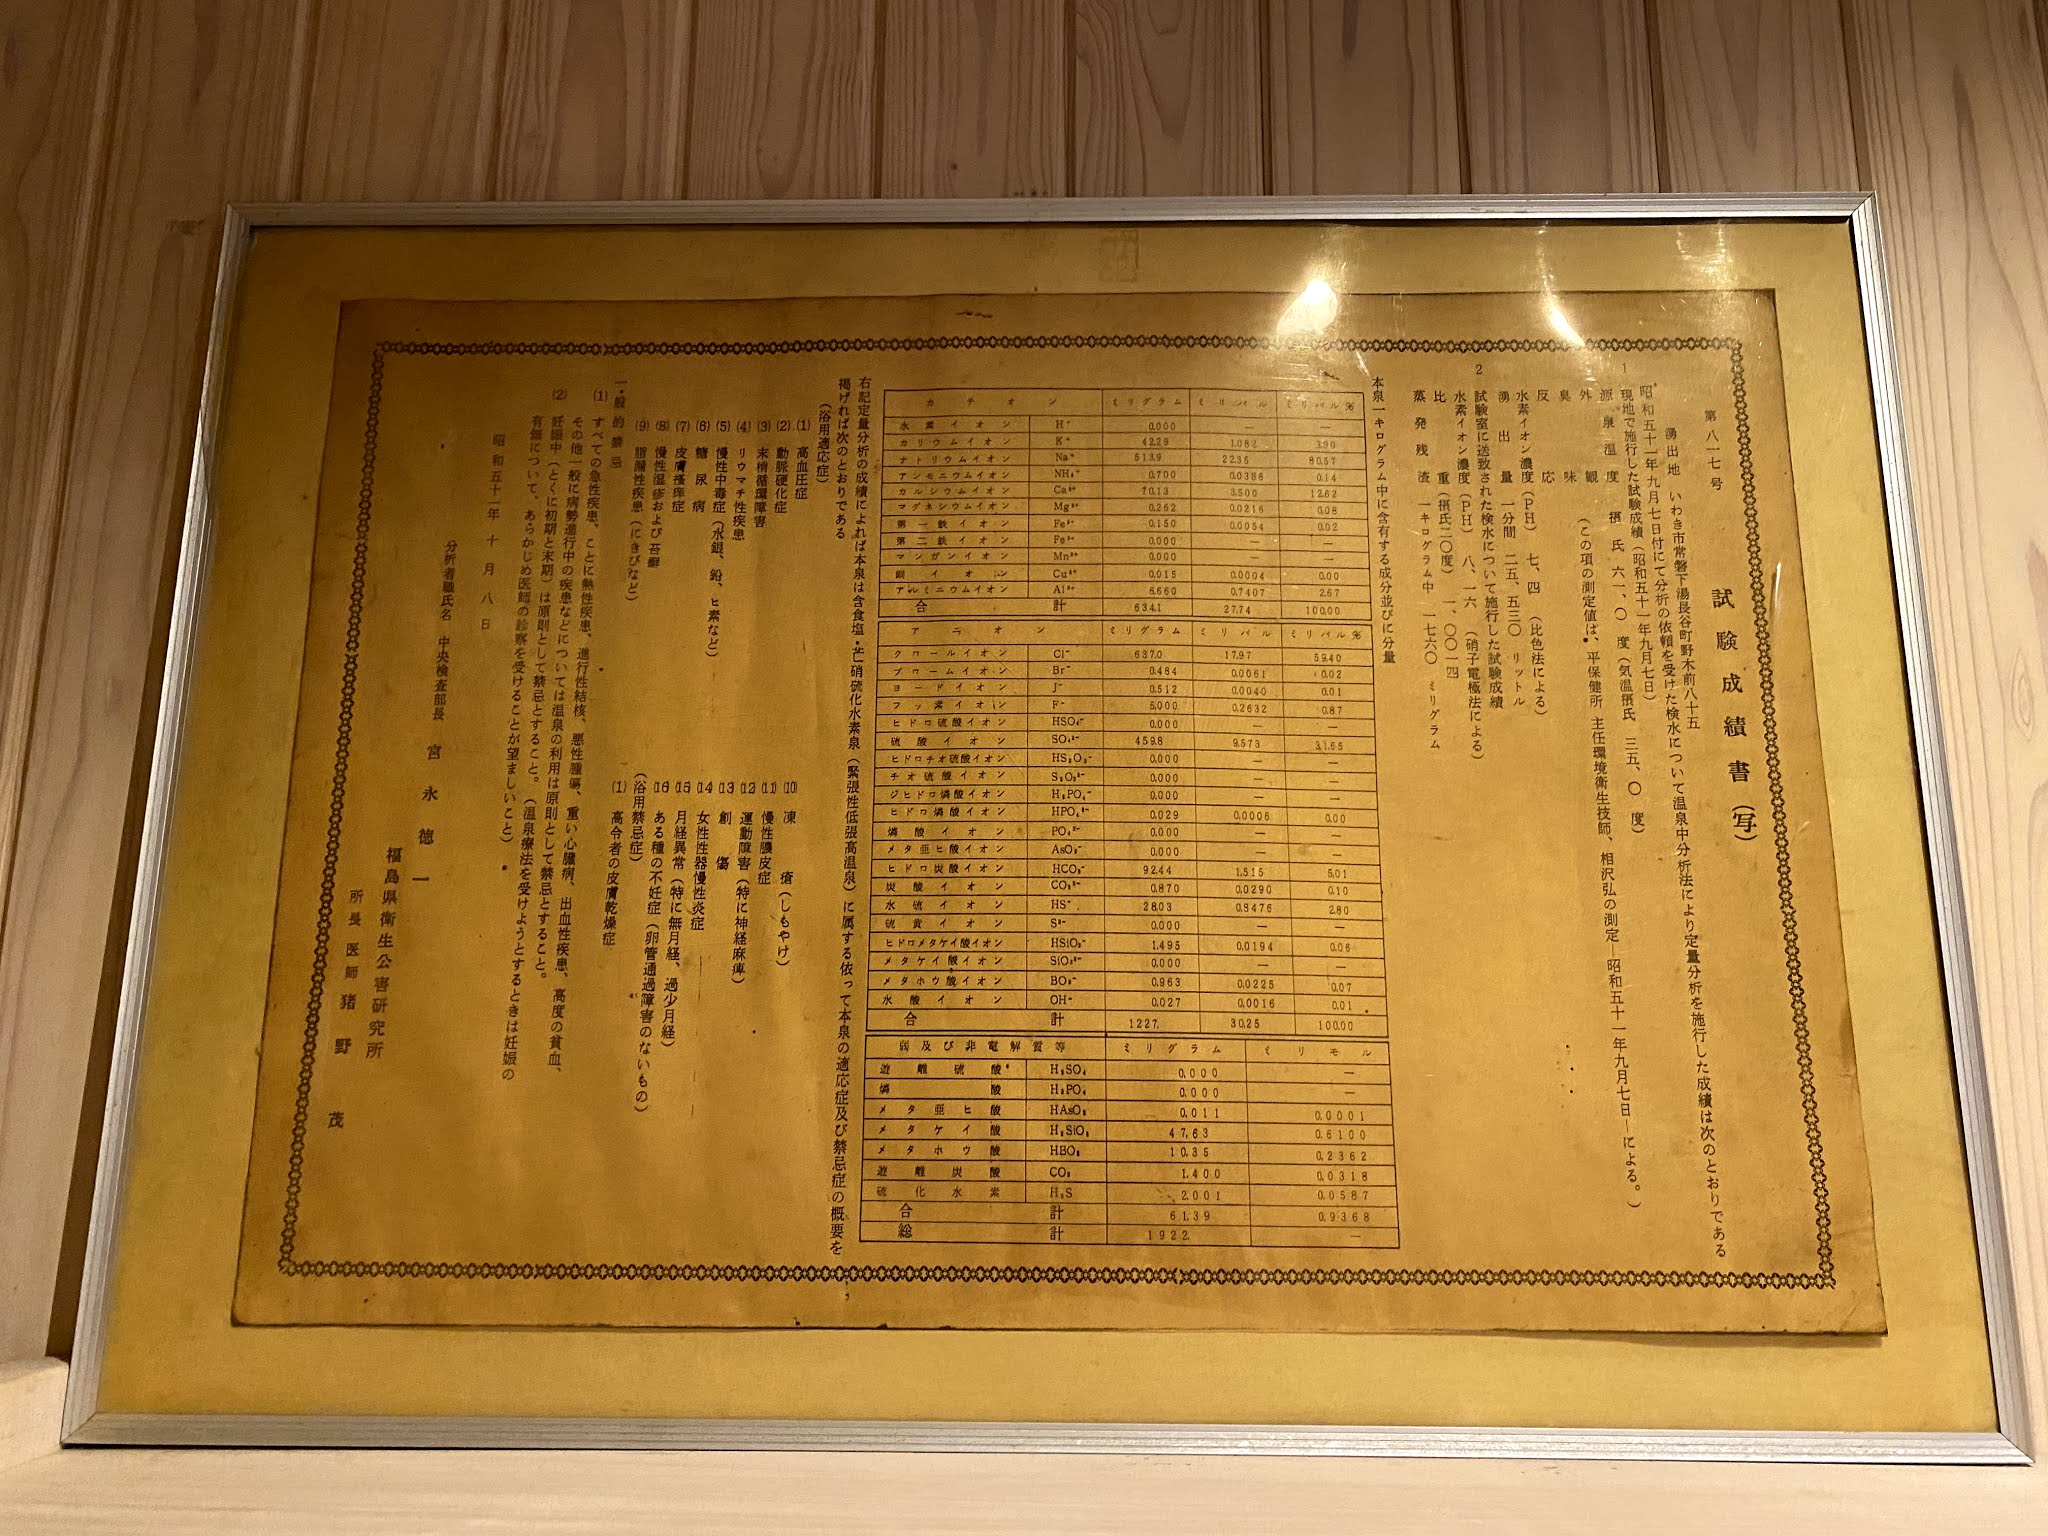 試験成績書(写)
第八一七号
湧出地 いわき市常磐下湯長谷町野木前八十五
昭和五十一年九月七日付にて分析の依頼を受けた検水について温泉中分析法により定量分析を施行した成績は次のとおりである
1 現地で施行した試験成績(昭和五十一年九月七日)
(この項の測定値は、平保健所 主任環境衛生技師、相沢弘の測定―昭和五十一年九月七日―による。)
源泉温度 摂氏 六一、〇 度(気温摂氏 三五、〇 度)
外観
臭味
反応
水素イオン濃度(PH) 七、四 (比色法による)
湧出量 一分間 二五、五三〇 リットル
2 試験室に送致された検水について施行した試験成績
水素イオン濃度(PH) 八、一六 (硝子電極法による)
比重(摂氏二〇度) 一、〇〇一四
蒸発残渣 一キログラム中 一七六〇 ミリグラム
本泉一キログラム中に含有する成分並びに分量
カチオン ミリグラム ミリバル ミリバル%
水素イオン H⁺ 0.000 — —
カリウムイオン K⁺ 42.29 1.082 3.90
ナトリウムイオン Na⁺ 513.9 22.35 80.57
アンモニウムイオン NH₄⁺ 0.700 0.0388 0.14
カルシウムイオン Ca²⁺ 70.13 3.500 12.62
マグネシウムイオン Mg²⁺ 0.262 0.0216 0.08
第一鉄イオン Fe²⁺ 0.150 0.0054 0.02
第二鉄イオン Fe³⁺ 0.000 — —
マンガンイオン Mn²⁺ 0.000 — —
銅イオン Cu²⁺ 0.015 0.0004 0.00
アルミニウムイオン Al³⁺ 6.660 0.7407 2.67
合計 634.1 27.74 100.00
アニオン ミリグラム ミリバル ミリバル%
クロールイオン Cl⁻ 637.0 17.97 59.40
ブロームイオン Br⁻ 0.484 0.0061 0.02
ヨードイオン J⁻ 0.512 0.0040 0.01
フッ素イオン F⁻ 5.000 0.2632 0.87
ヒドロ硫酸イオン HSO₄⁻ 0.000 — —
硫酸イオン SO₄²⁻ 459.8 9.573 31.65
ヒドロチオ硫酸イオン HS₂O₃⁻ 0.000 — —
チオ硫酸イオン S₂O₃²⁻ 0.000 — —
ジヒドロ燐酸イオン H₂PO₄⁻ 0.000 — —
ヒドロ燐酸イオン HPO₄²⁻ 0.029 0.0006 0.00
燐酸イオン PO₄³⁻ 0.000 — —
メタ亜ヒ酸イオン AsO₂⁻ 0.000 — —
ヒドロ炭酸イオン HCO₃⁻ 92.44 1.515 5.01
炭酸イオン CO₃²⁻ 0.870 0.0290 0.10
水硫イオン HS⁻ 28.03 0.8476 2.80
硫黄イオン S²⁻ 0.000 — —
ヒドロメタケイ酸イオン HSiO₃⁻ 1.495 0.0194 0.06
メタケイ酸イオン SiO₃²⁻ 0.000 — —
メタホウ酸イオン BO₂⁻ 0.963 0.0225 0.07
水酸イオン OH⁻ 0.027 0.0016 0.01
合計 1227. 30.25 100.00
弱及び非電解質等 ミリグラム ミリモル
遊離硫酸 H₂SO₄ 0.000 —
燐酸 H₃PO₄ 0.000 —
メタ亜ヒ酸 HAsO₂ 0.011 0.0001
メタケイ酸 H₂SiO₃ 47.63 0.6100
メタホウ酸 HBO₂ 10.35 0.2362
遊離炭酸 CO₂ 1.400 0.0318
硫化水素 H₂S 2.001 0.0587
合計 61.39 0.9368
総計 1922. —
右記定量分析の成績によれば本泉は含食塩・芒硝硫化水素泉(緊張性低張高温泉)に属する依って本泉の適応症及び禁忌症の概要を
掲げれば次のとおりである
(浴用適応症)
(1) 高血圧症
(2) 動脈硬化症
(3) 末梢循環障害
(4) リウマチ性疾患
(5) 慢性中毒症(水銀、鉛、ヒ素など)
(6) 糖尿病
(7) 皮膚掻痒症
(8) 慢性湿疹および苔癬
(9) 脂漏性疾患(にきびなど)
(10) 凍瘡(しもやけ)
(11) 慢性膿皮症
(12) 運動障害(特に神経麻痺)
(13) 創傷
(14) 女性性器慢性炎症
(15) 月経異常(特に無月経、過少月経)
(16) ある種の不妊症(卵管通過障害のないもの)
(浴用禁忌症)
(1) 高令者の皮膚乾燥症
一般的禁忌
(1) すべての急性疾患、ことに熱性疾患、進行性結核、悪性腫瘍、重い心臓病、出血性疾患、高度の貧血、
その他一般に病勢進行中の疾患などについては温泉の利用は原則として禁忌とすること。
(2) 妊娠中(とくに初期と末期)は原則として禁忌とすること。(温泉療法を受けようとするときは妊娠の
有無について、あらかじめ医師の診察を受けることが望ましいこと)
昭和五十一年十月八日
分析者職氏名 中央検査部長 宮永徳一
福島県衛生公害研究所
所長 医師 猪野茂